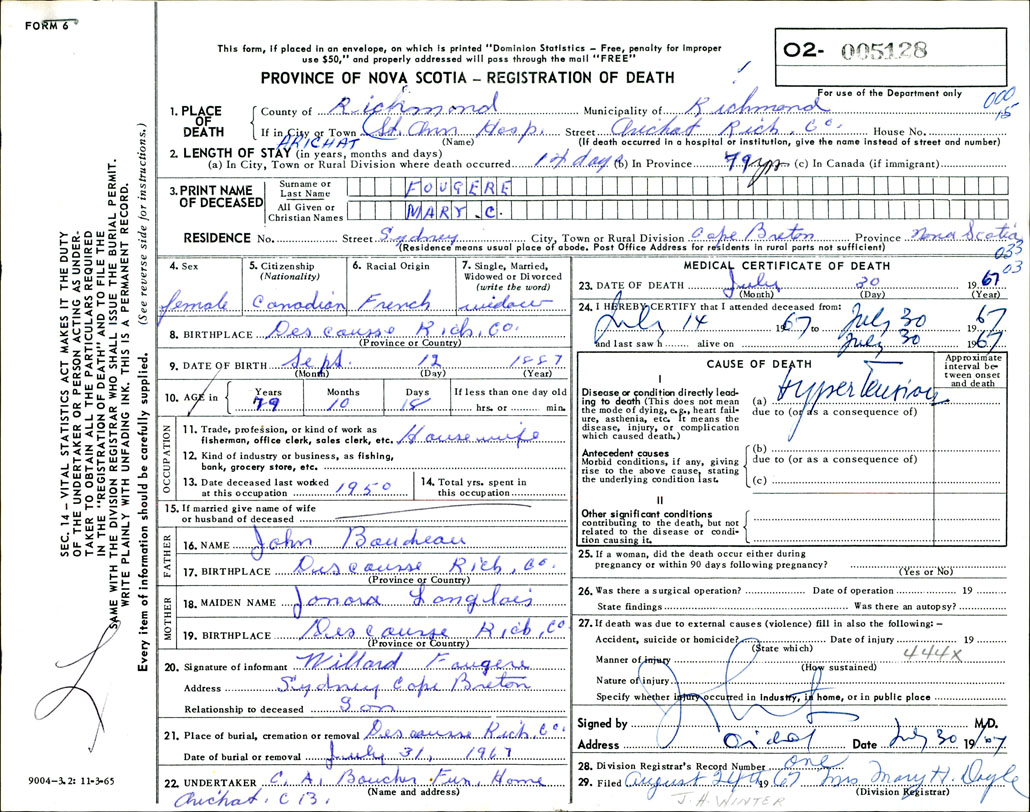 FORM 6
This form, if placed in an envelope, on which is printed "Dominion Statistics – Free, penalty for improper
use $50," and properly addressed will pass through the mail "FREE"
O2- 005128
For use of the Department only
PROVINCE OF NOVA SCOTIA – REGISTRATION OF DEATH
000
15
1. PLACE OF DEATH
County of Richmond Municipality of Richmond
If in City or Town St. Ann Hosp. Street Arichat Rich. Co. House No.
ARICHAT (Name) (If death occurred in a hospital or institution, give the name instead of street and number)
2. LENGTH OF STAY (in years, months and days)
(a) In City, Town or Rural Division where death occurred 14 days (b) In Province 79 yrs (c) In Canada (if immigrant)
3. PRINT NAME OF DECEASED
Surname or Last Name FOUGERE
All Given or Christian Names MARY. C.
RESIDENCE No. Street Sydney City, Town or Rural Division Cape Breton Province Nova Scotia
(Residence means usual place of abode. Post Office Address for residents in rural parts not sufficient)
033
03
4. Sex female
5. Citizenship (Nationality) Canadian
6. Racial Origin French
7. Single, Married, Widowed or Divorced (write the word) widow
8. BIRTHPLACE Descousse Rich. Co.
(Province or Country)
9. DATE OF BIRTH Sept. 12 1887
(Month) (Day) (Year)
10. AGE in Years 79 Months 10 Days 18 If less than one day old hrs. or min.
OCCUPATION
11. Trade, profession, or kind of work as fisherman, office clerk, sales clerk, etc. Housewife
12. Kind of industry or business, as fishing, bank, grocery store, etc.
13. Date deceased last worked at this occupation 1950
14. Total yrs. spent in this occupation
15. If married give name of wife or husband of deceased
FATHER
16. NAME John Boudreau
17. BIRTHPLACE Descousse Rich. Co.
(Province or Country)
MOTHER
18. MAIDEN NAME Langlois
19. BIRTHPLACE Descousse Rich. Co
(Province or Country)
20. Signature of informant Willard Fougere
Address Sydney Cape Breton
Relationship to deceased Son
21. Place of burial, cremation or removal Descousse Rich. Co.
Date of burial or removal July 31, 1967
22. UNDERTAKER C. A. Boucher Fun. Home
(Name and address)
Arichat. C B.
MEDICAL CERTIFICATE OF DEATH
23. DATE OF DEATH July 30 1967
(Month) (Day) (Year)
24. I HEREBY CERTIFY that I attended deceased from:
July 14 1967 to July 30 67
and last saw h alive on July 30 1967
CAUSE OF DEATH
Approximate interval between onset and death
I
Disease or condition directly leading to death (This does not mean the mode of dying, e.g., heart failure, asthenia, etc. It means the disease, injury, or complication which caused death.)
(a) Hypertension
due to (or as a consequence of)
Antecedent causes
Morbid conditions, if any, giving rise to the above cause, stating the underlying condition last.
(b)
due to (or as a consequence of)
(c)
II
Other significant conditions
contributing to the death, but not related to the disease or condition causing it.
25. If a woman, did the death occur either during pregnancy or within 90 days following pregnancy?
(Yes or No)
26. Was there a surgical operation? Date of operation 19
State findings Was there an autopsy?
27. If death was due to external causes (violence) fill in also the following: –
Accident, suicide or homicide? Date of injury 19
(State which) 444X
Manner of injury
(How sustained)
Nature of injury
Specify whether injury occurred in industry, in home, or in public place
Signed by M.D.
Address Date July 30 1967
28. Division Registrar's Record Number one
29. Filed August 24th 1967 Mrs Mary H. Doyle
(Division Registrar)
J. H. WINTER
SEC. 14 – VITAL STATISTICS ACT MAKES IT THE DUTY
OF THE UNDERTAKER OR PERSON ACTING AS UNDER-
TAKER TO OBTAIN ALL THE PARTICULARS REQUIRED
IN THE "REGISTRATION OF DEATH" AND TO FILE THE
SAME WITH THE DIVISION REGISTRAR WHO SHALL ISSUE THE BURIAL PERMIT.
WRITE PLAINLY WITH UNFADING INK. THIS IS A PERMANENT RECORD.
Every item of information should be carefully supplied. (See reverse side for instructions.)
9004-3.2: 11-3-65